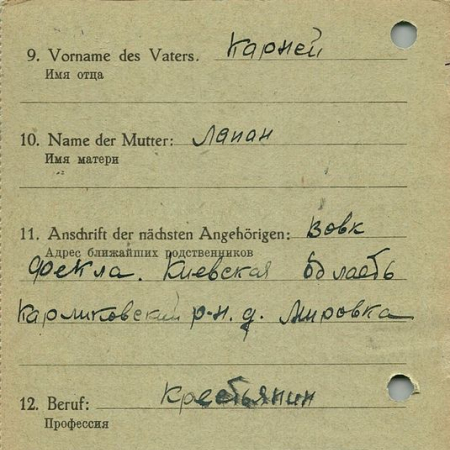 9. Vorname des Vaters. Карней
Имя отца
10. Name der Mutter: Лапан
Имя матери
11. Anschrift der nächsten Angehörigen: Вовк
Адрес ближайших родственников
Фекла. Киевская область
Карликовский р-н. д. Мировка
12. Beruf: Крестьянин
Профессия